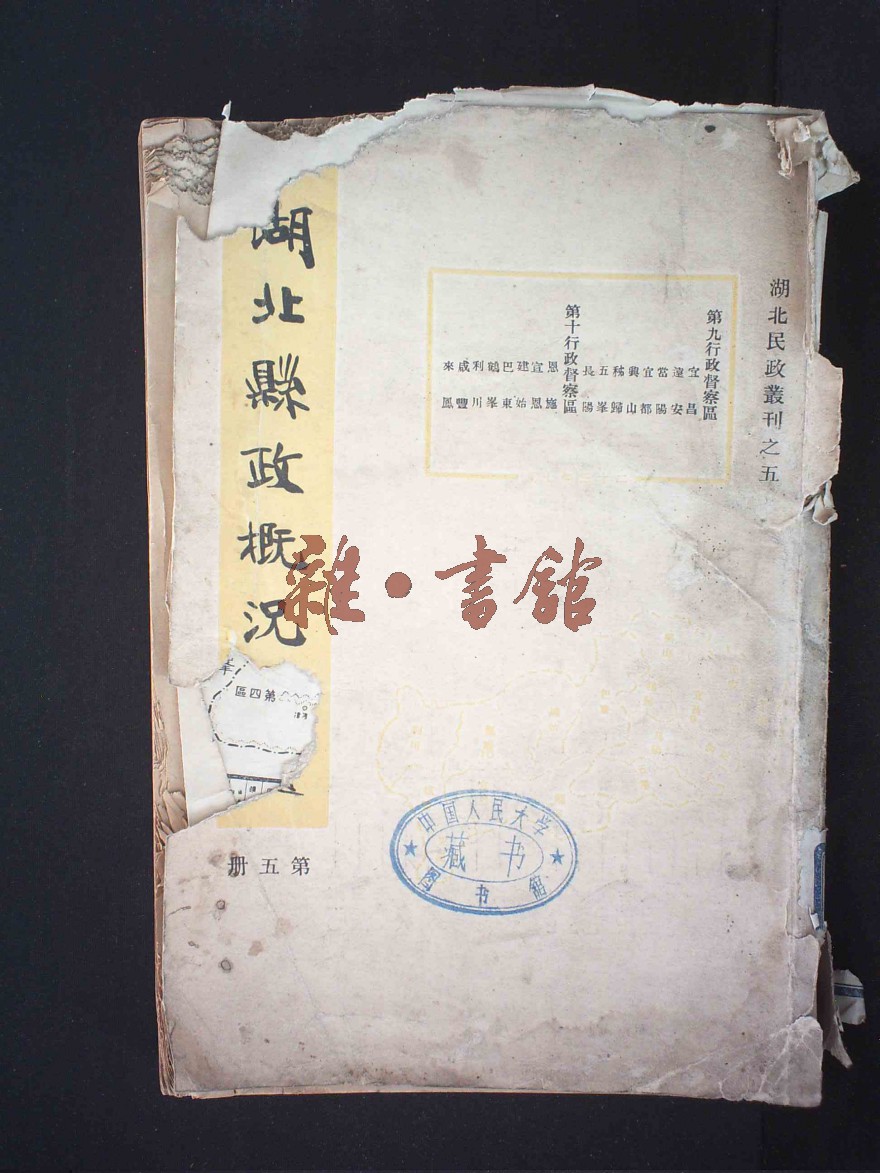 湖北民政叢刊之五
第九行政督察區
宜昌
遠安
當陽
宜都
興山
秭歸
五峯
長陽
第十行政督察區
恩施
宣恩
建始
巴東
鶴峯
利川
咸豐
來鳳
湖北縣政概況
第五册
第四區
雜·書館
中国人民大学
藏书
图书馆